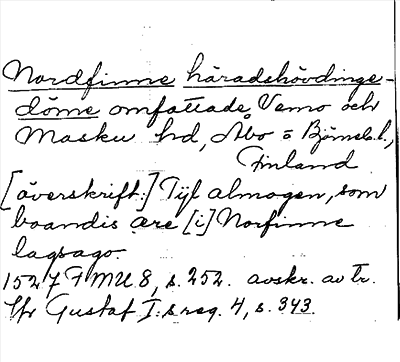 Nordfinne häradshövdinge-
döme omfattade Vemo och
Masku hd, Åbo o Björneb. l.,
Finland
[överskrift:] Tijl almogen, som
boandis äre [i] Norfinne
lagsago.
1527 FMU 8, s. 252. avskr. av tr.
Jfr Gustaf I:s reg. 4, s. 343.